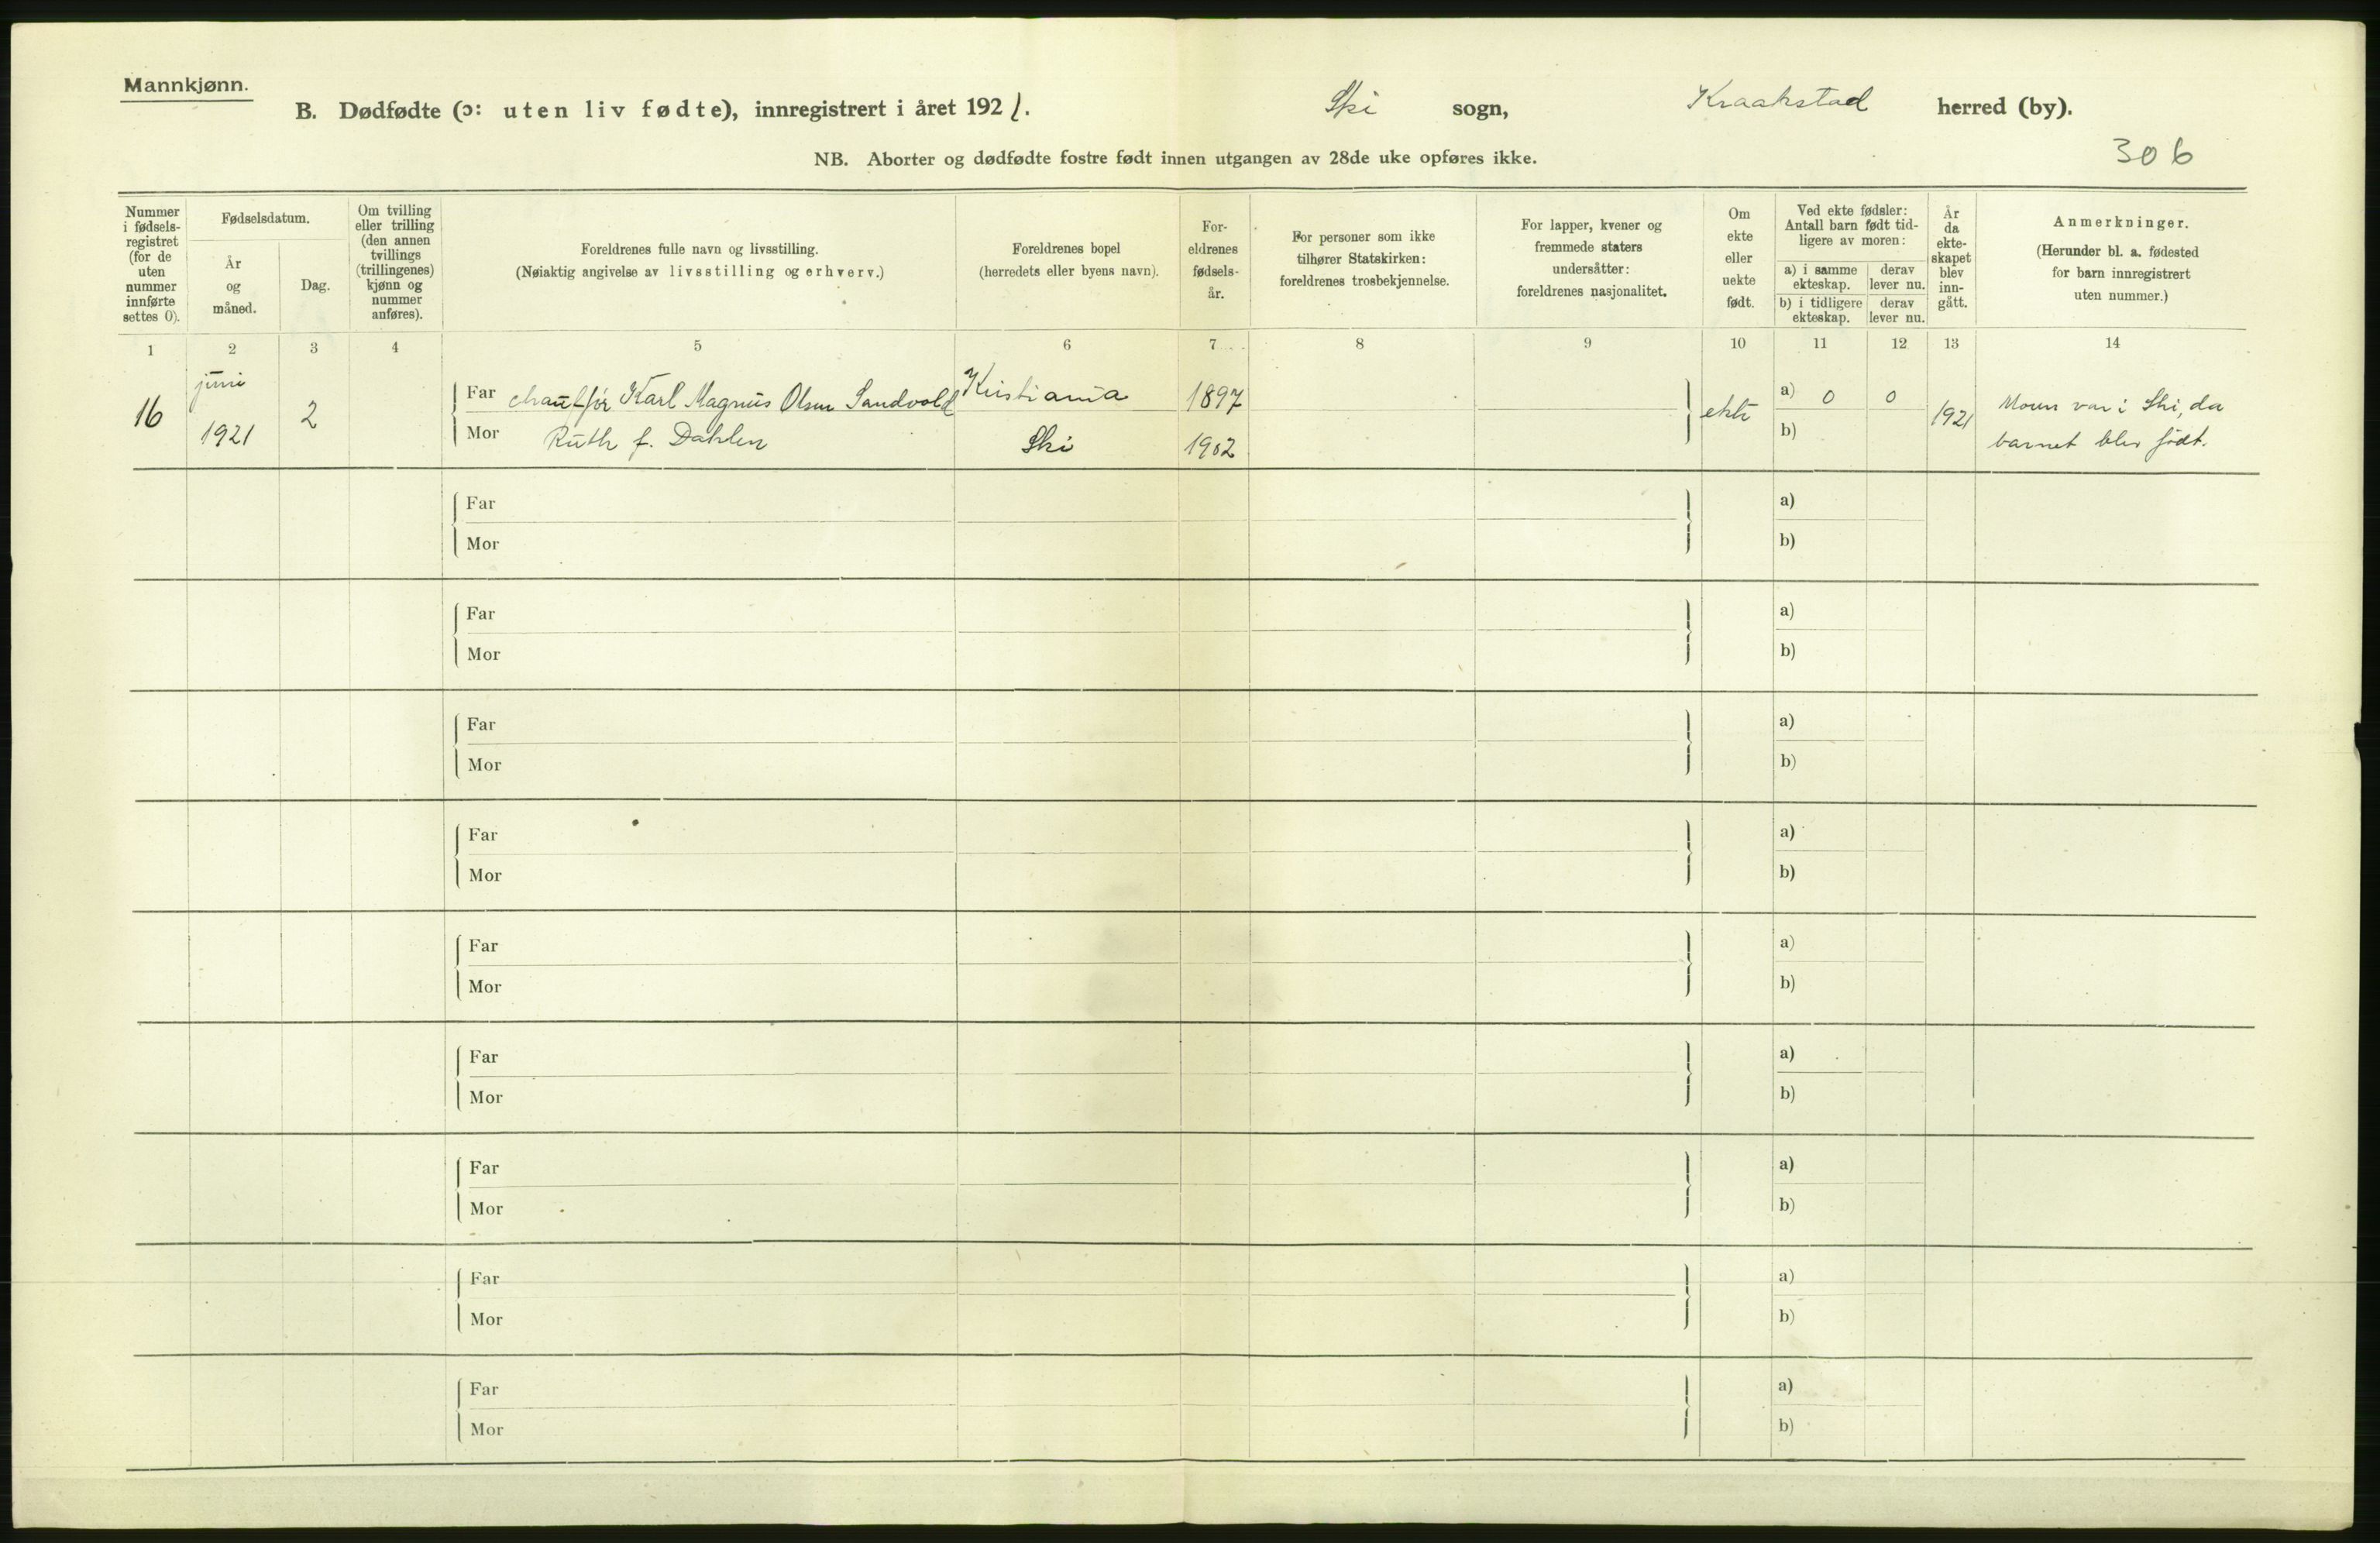 Mannkjønn.
B. Dødfødte (ɔ: uten liv fødte), innregistrert i året 1921. Ski sogn, Kraakstad herred (by).
306
NB. Aborter og dødfødte fostre født innen utgangen av 28de uke opføres ikke.
Nummer i fødsels-registret (for de uten nummer innførte settes 0).
Fødselsdatum.
År og måned.
Dag.
Om tvilling eller trilling (den annen tvillings (trillingenes) kjønn og nummer anføres).
Foreldrenes fulle navn og livsstilling.
(Nøiaktig angivelse av livsstilling og erhverv.)
Foreldrenes bopel
(herredets eller byens navn).
For-eldrenes fødsels-år.
For personer som ikke tilhører Statskirken: foreldrenes trosbekjennelse.
For lapper, kvener og fremmede staters undersåtter: foreldrenes nasjonalitet.
Om ekte eller uekte født.
Ved ekte fødsler: Antall barn født tid-ligere av moren:
a) i samme ekteskap. derav lever nu.
b) i tidligere ekteskap. derav lever nu.
År da ekte-skapet blev inn-gått.
Anmerkninger.
(Herunder bl. a. fødested for barn innregistrert uten nummer.)
1 2 3 4 5 6 7 8 9 10 11 12 13 14
16 juni 1921 2
Far chauffør Karl Magnus Olsen Sandvold Kristiania 1897
Mor Ruth f. Dahlen Ski 1902
ekte a) 0 0 b) 1921
Moren var i Ski, da
barnet blev født.
Far a)
Mor b)
Far a)
Mor b)
Far a)
Mor b)
Far a)
Mor b)
Far a)
Mor b)
Far a)
Mor b)
Far a)
Mor b)
Far a)
Mor b)
Far a)
Mor b)